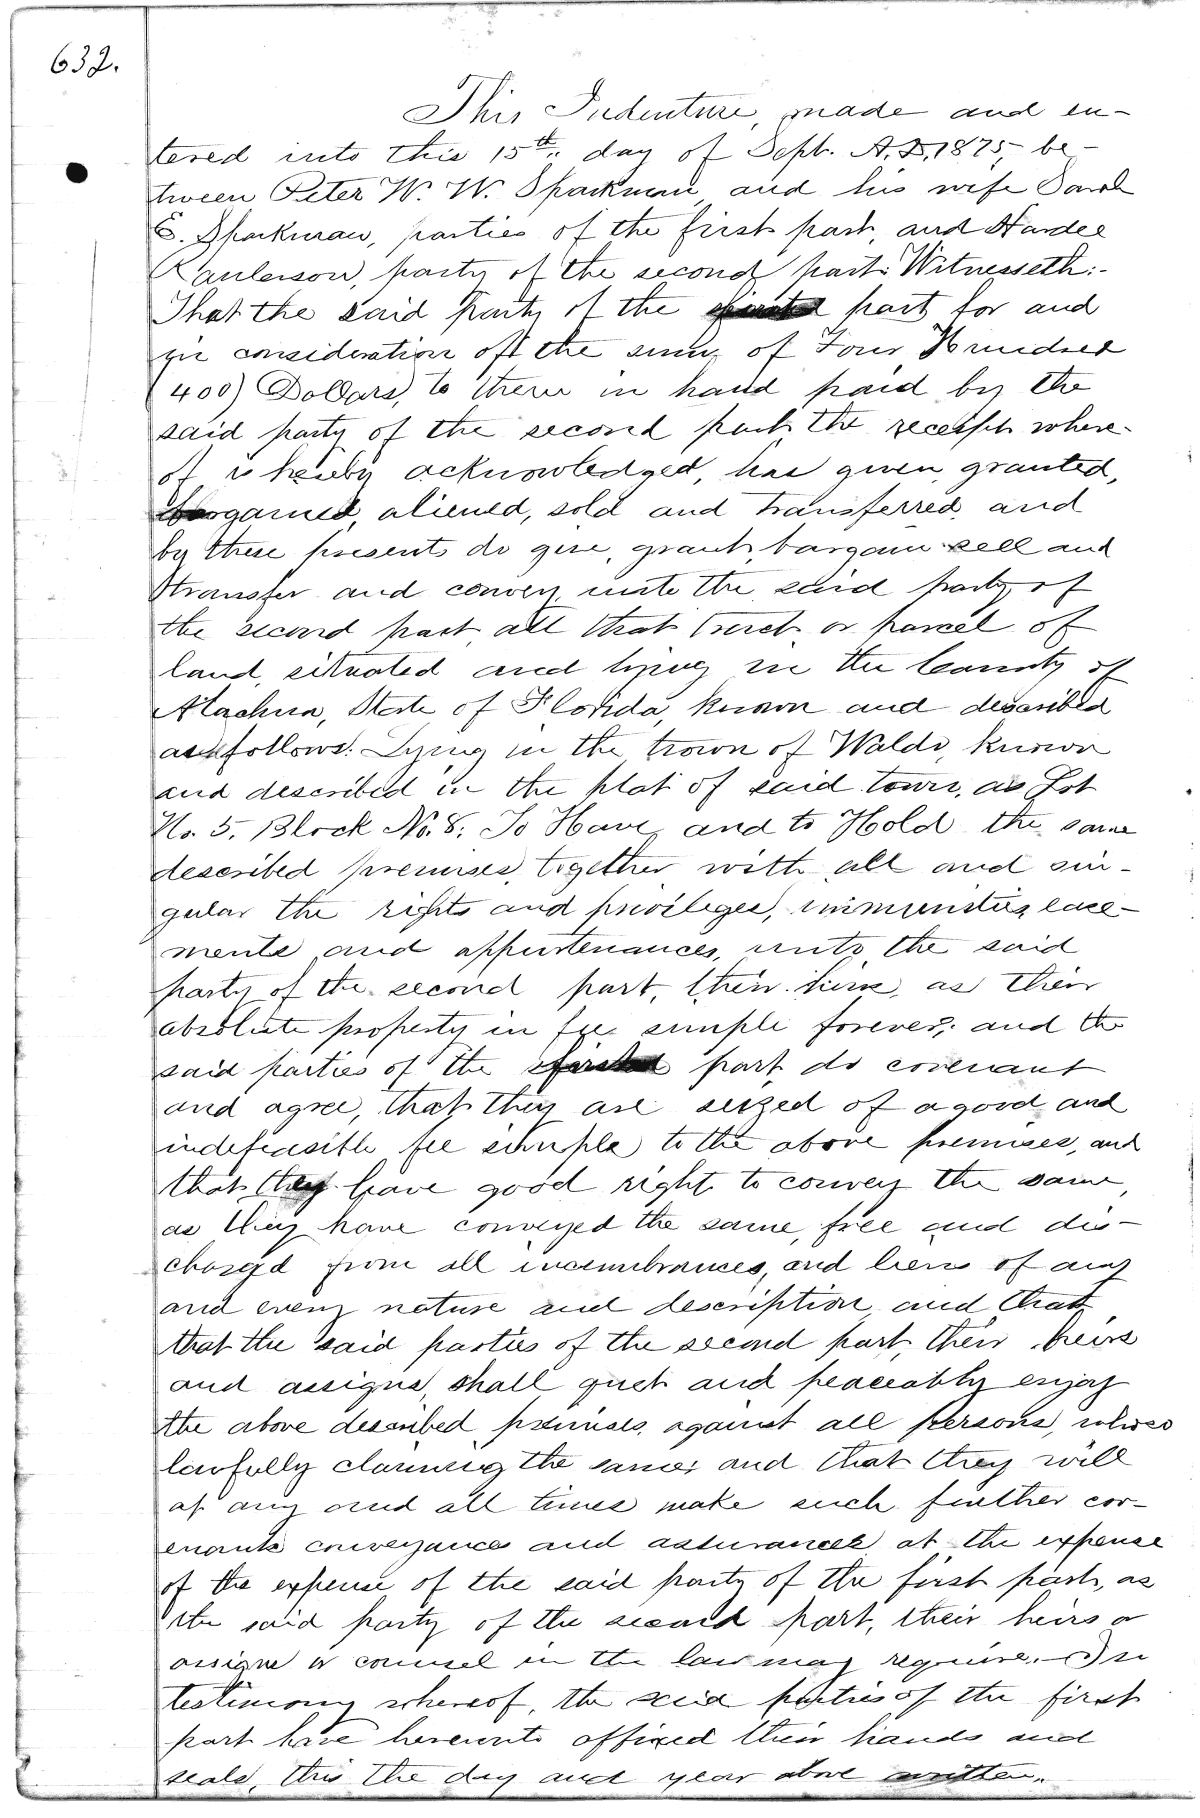 632.
This Indenture, made and en-
tered into this 15th,, day of Sept. A.D. 1875, be-
tween Peter W. W. Sparkman, and his wife Sarah
E. Sparkman, parties of the first part, and Hardee
Raulerson, party of the second part: Witnesseth:-
That the said party of the first part for and
in consideration of the sum, of Four Hundred
(400) Dollars, to them in hand paid by the
said party of the second part, the receipt where-
of is hereby acknowledged, has given, granted,
bargained, aliened, sold and transferred, and
by these presents do give, grant, bargain sell and
transfer and convey, unto the said party of
the second part, all that tract or parcel of
land, situated and lying in the County of
Alachua, State of Florida, known and described
as follows: Lying in the town of Waldo, known
and described in the plat of said town, as Lot
No. 5. Block No. 8: To Have, and to Hold the same
described premises, together with all and sin-
gular the rights and privileges, immunities, ease-
ments and appurtenances, unto the said
party of the second part, their heirs, as their
absolute property in fee simple forever; and the
said parties of the first part, do covenant
and agree, that they are seized of a good and
indefeasible fee simple to the above premises, and
that they have good right to convey the same,
as they have conveyed the same, free and dis-
charged from all incumbrances, and liens of any
and every nature and description, and that
that the said parties of the second part, their heirs
and assigns, shall quet and peaceably enjoy
the above described premises, against all persons,
lawfully claiming the same: and that they will
at any and all times make such further cov-
enants conveyances and assurances at the expense
of the expense of the said party of the first part, as
the said party of the second part, their heirs or
assigns or counsel in the law may require. In
testimony whereof, the said parties of the first
part have hereunto affixed their hands and
seals, this the day and year above written.